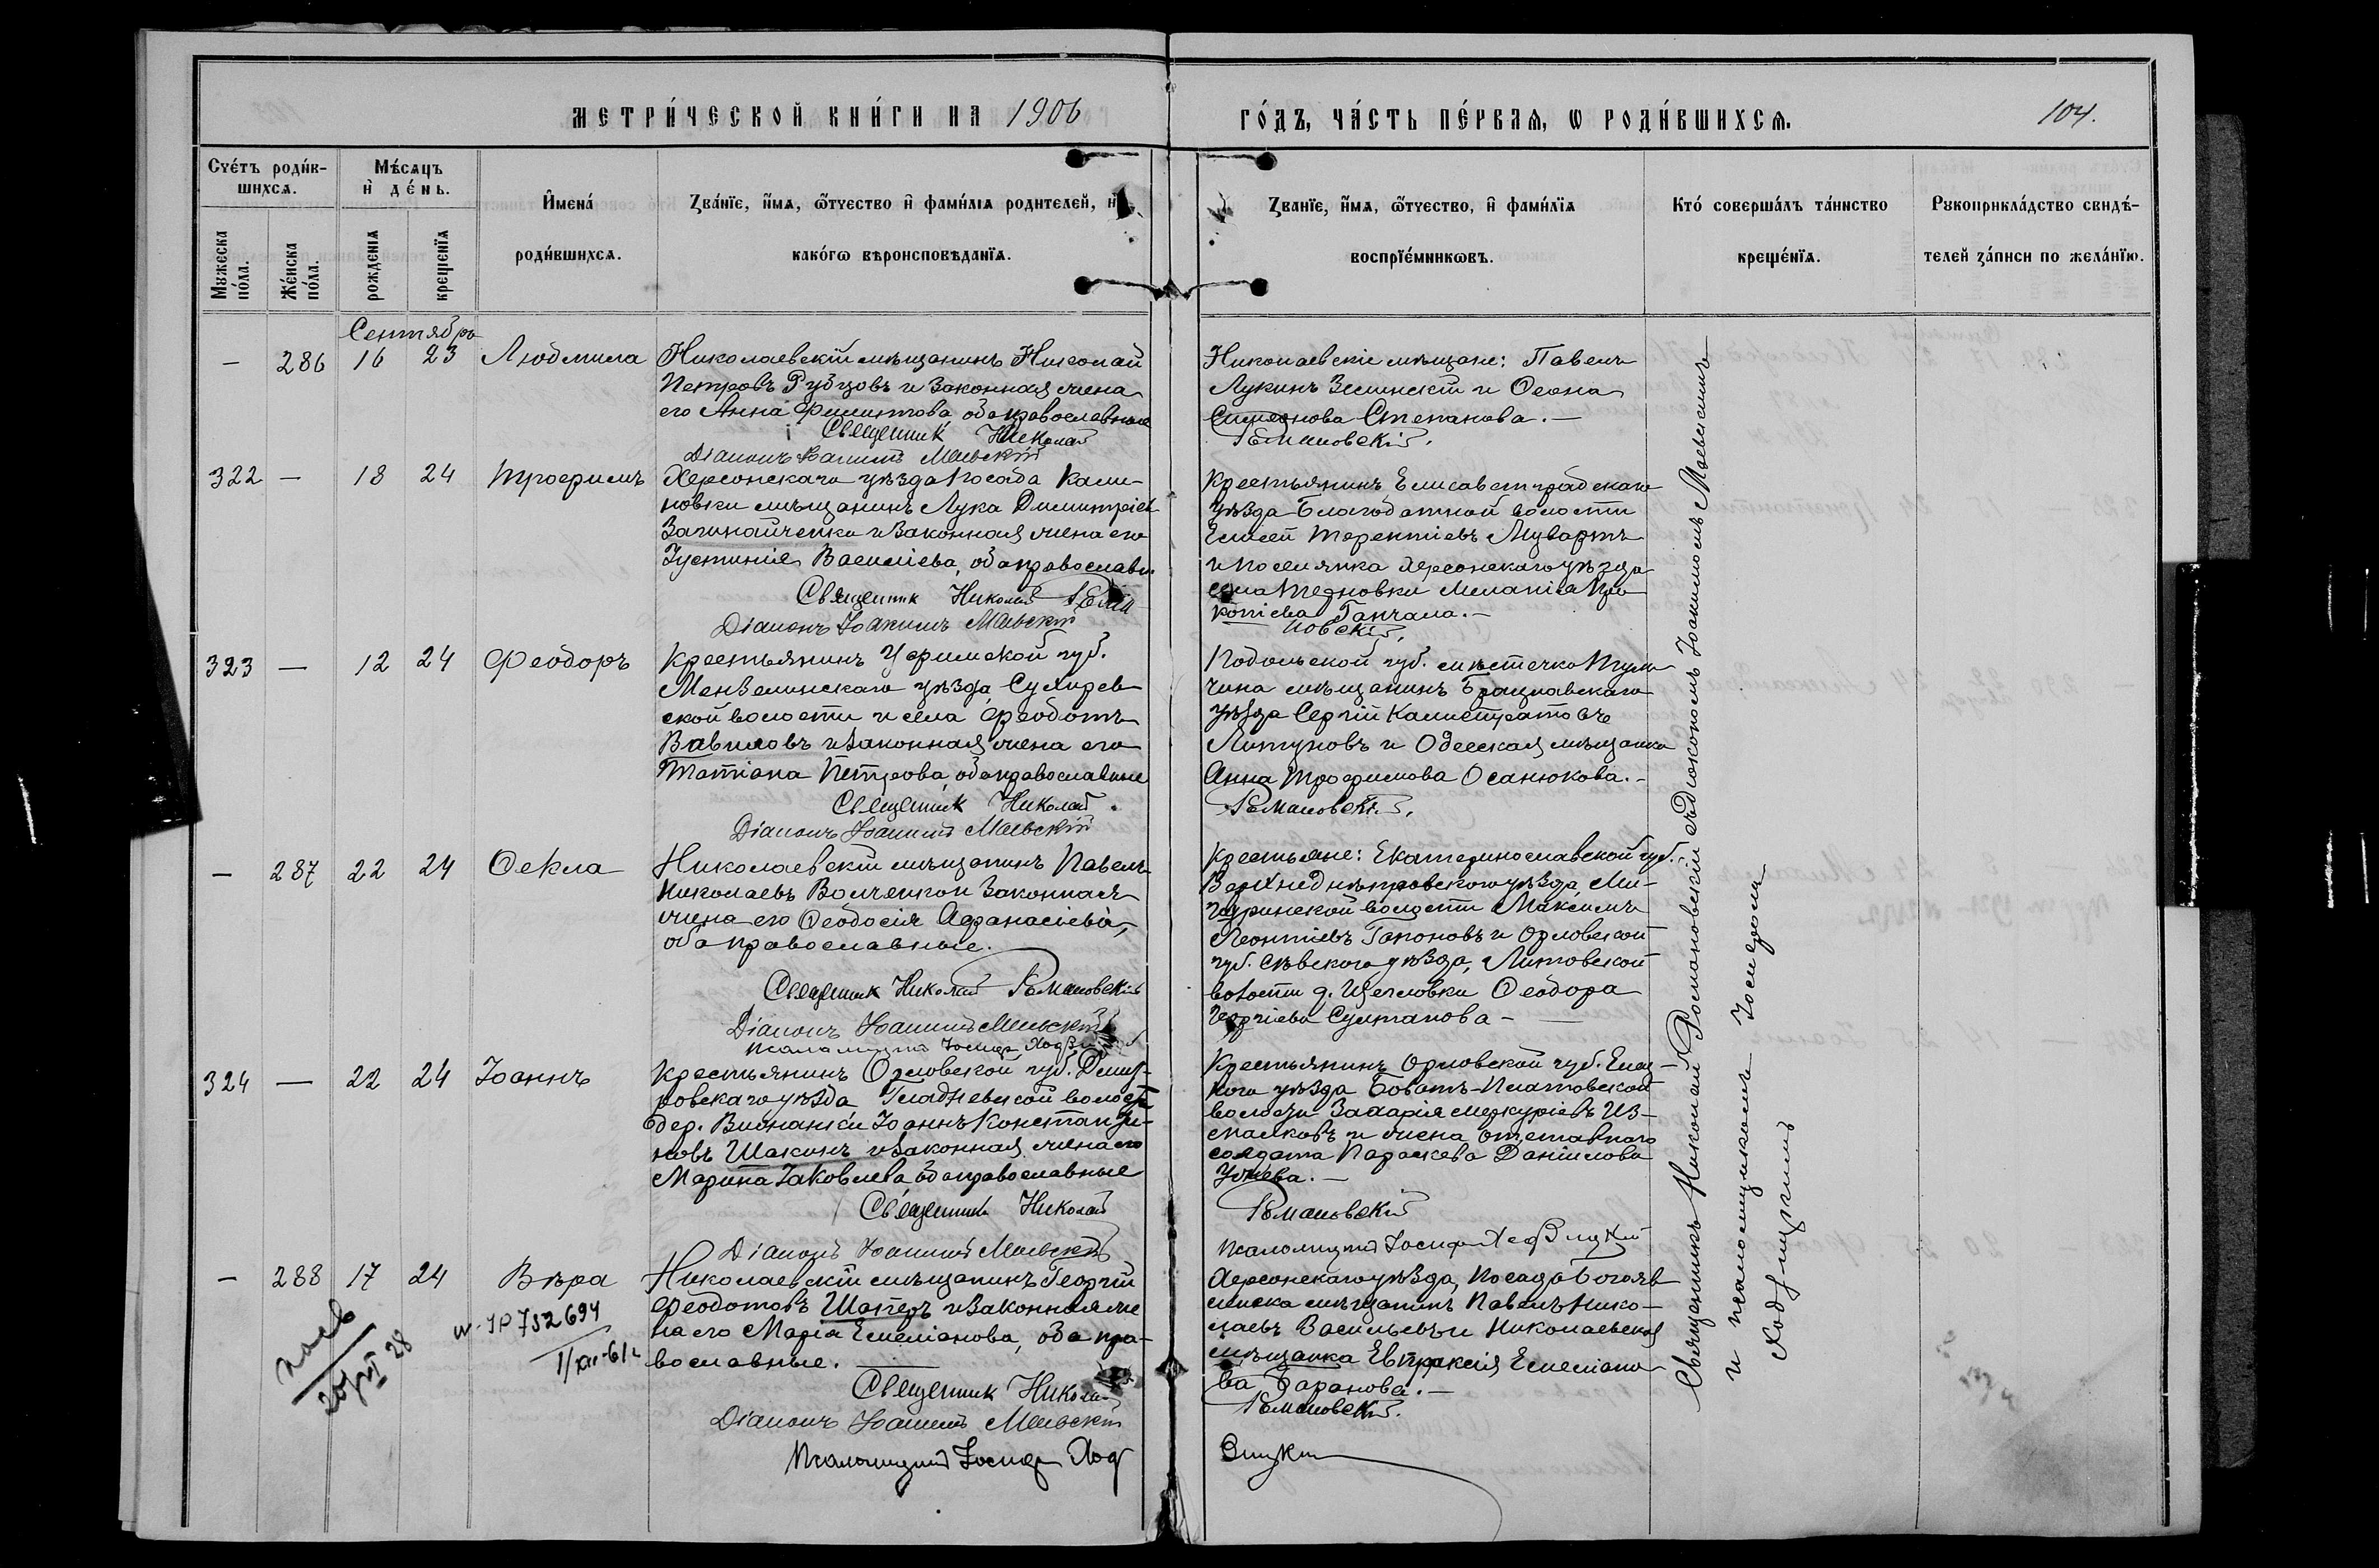 МЕТРИ́ЧЕСКОЙ КНИ́ГИ НА 1906 ГО́ДЪ, ЧА́СТЬ ПЕ́РВАѦ, Ѡ РОДИ́ВШИХСѦ.
104.
Сче́тъ роди́в-
шихсѧ.
Мꙋжеска по́ла.
Же́нска по́ла.
Мѣ́сѧцъ
и҆ де́нь.
рожденїѧ
крещенїѧ
И҆мена́
роди́вшихсѧ.
Зва́нїе, и҆́мѧ, ѻ҆́тчество и҆ фами́лїѧ родителей, и҆
како́гѡ вѣроисповѣданїѧ.
Зва́нїе, и҆́мѧ, ѻ҆́тчество, и҆ фами́лїѧ
воспрїе́мникѡвъ.
Кто́ соверша́лъ та́инство
креще́нїѧ.
Рꙋкоприкла́дство свидѣ́-
телей за́писи по жела́нїю.
Сентябрь
— 286 16 23 Людмила
Николаевскій мѣщанинъ Николай
Петровъ Рубцовъ и законная жена
его Анна Филиппова, оба православные
Священник Николай
Діаконъ Іоакимъ Маевскій
Николаевскіе мѣщане: Павелъ
Лукинъ Зелинскій и Ѳеона
Симеонова Степанова. —
Романовскій.
322 — 18 24 Трофимъ
Херсонскаго уѣзда посада Кали-
новки мѣщанинъ Лука Димитріевъ
Загинайченко и законная жена его
Іустинія Василіева, оба православн.
Священник Николай Рома-
Діаконъ Іоакимъ Маевскій
Крестьянинъ Елисаветградскаго
уѣзда Благодатной волости
Елисей Терентіевъ
и поселянка Херсонскаго уѣзда
села Терновки Меланія Про-
копіева Ганчала. —
новскій.
323 — 12 24 Феодоръ
Крестьянинъ Уфимской губ.
Мензелинскаго уѣзда, Сухарев-
ской волости и села Феодотъ
Вавиловъ и законная жена его
Татіана Петрова, оба православные
Священник Николай
Діаконъ Іоакимъ Маевскій
Подольской губ. мѣстечка Туль-
чина мѣщанинъ Брацлавскаго
уѣзда Сергій Калистратовъ
Литуновъ и Одесская мѣщанка
Анна Трофимова Осанюкова. —
Романовскій.
— 287 22 24 Ѳекла
Николаевскій мѣщанинъ Павелъ
Николаевъ Волченко и законная
жена его Ѳеодосія Афанасіева,
оба православные.
Священник Николай Романовскій
Діаконъ Іоакимъ Маевскій
Псаломщикъ Іосиф
Крестьяне: Екатеринославской губ.
Верхнеднѣпровскаго уѣзда, Ми-
шуринской волости Максимъ
Леонтіевъ Гапоновъ и Орловской
губ. Сѣвскаго уѣзда, Литовской
волости д. Щегловки Ѳеодора
Георгіева Султанова —
324 — 22 24 Іоаннъ
Крестьянинъ Орловской губ. Дмит-
ровскаго уѣзда Гладневской волости
дер. Іоаннъ Констанди-
новъ Шакинъ и законная жена его
Марина Іаковлева, оба православные
Священникъ Николай
Діаконъ Іоакимъ Маевскій
Крестьянинъ Орловской губ. Елец-
каго уѣзда Богатъ-Платовской
волости Захарія Меркуріевъ Из-
малковъ и жена отставного
солдата Параскева Даніилова
Романовскій
Псаломщикъ Іосиф Ходзицкій
— 288 17 24 Вѣра
Николаевскій мѣщанинъ Георгій
Феодотовъ Шапоръ и законная же
на его Марія Емеліанова, оба пра-
вославные.
Священник Николай
Діаконъ Іоакимъ Маевскій
Псаломщикъ Іосиф Ход
Херсонскаго уѣзда, посада Богояв
ленска мѣщанинъ Павелъ Нико-
лаевъ Васильевъ и Николаевская
мѣщанка Евпраксія Емеліано
ва Баранова. —
Романовскій.
зицкій
752694
Священникъ Николай Романовскій съ діакономъ Іоакимомъ Маевскимъ
и псаломщикомъ Іосифомъ
Ходзицкимъ